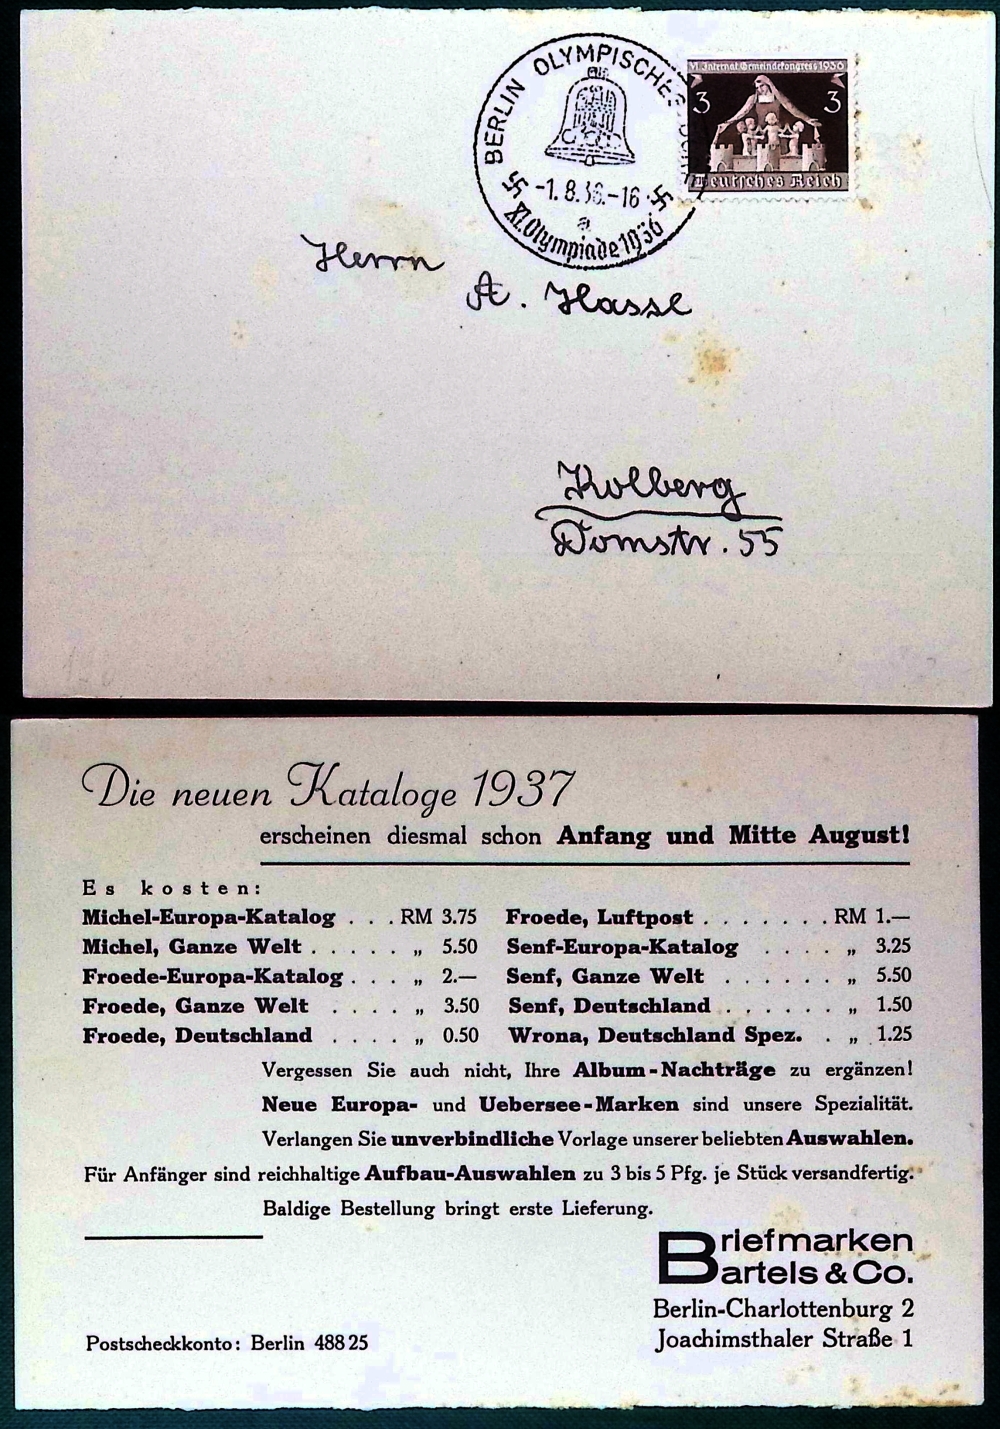 BERLIN OLYMPISCHES
-1.8.36.-16
a
XI. Olympiade 1936
VI. Internat. Gemeindekongress 1936
3 3
Deutsches Reich
Herrn
A. Hasse
Kolberg
Domstr. 55
Die neuen Kataloge 1937
erscheinen diesmal schon Anfang und Mitte August!
Es kosten:
Michel-Europa-Katalog . . . RM 3.75 Froede, Luftpost . . . . . . . RM 1.—
Michel, Ganze Welt . . . . . „ 5.50 Senf-Europa-Katalog . . . . „ 3.25
Froede-Europa-Katalog . . . . „ 2.— Senf, Ganze Welt . . . . . . „ 5.50
Froede, Ganze Welt . . . . „ 3.50 Senf, Deutschland . . . . . . „ 1.50
Froede, Deutschland . . . . „ 0.50 Wrona, Deutschland Spez. . „ 1.25
Vergessen Sie auch nicht, Ihre Album-Nachträge zu ergänzen!
Neue Europa- und Uebersee-Marken sind unsere Spezialität.
Verlangen Sie unverbindliche Vorlage unserer beliebten Auswahlen.
Für Anfänger sind reichhaltige Aufbau-Auswahlen zu 3 bis 5 Pfg. je Stück versandfertig.
Baldige Bestellung bringt erste Lieferung.
Briefmarken
Bartels & Co.
Berlin-Charlottenburg 2
Postscheckkonto: Berlin 488 25 Joachimsthaler Straße 1